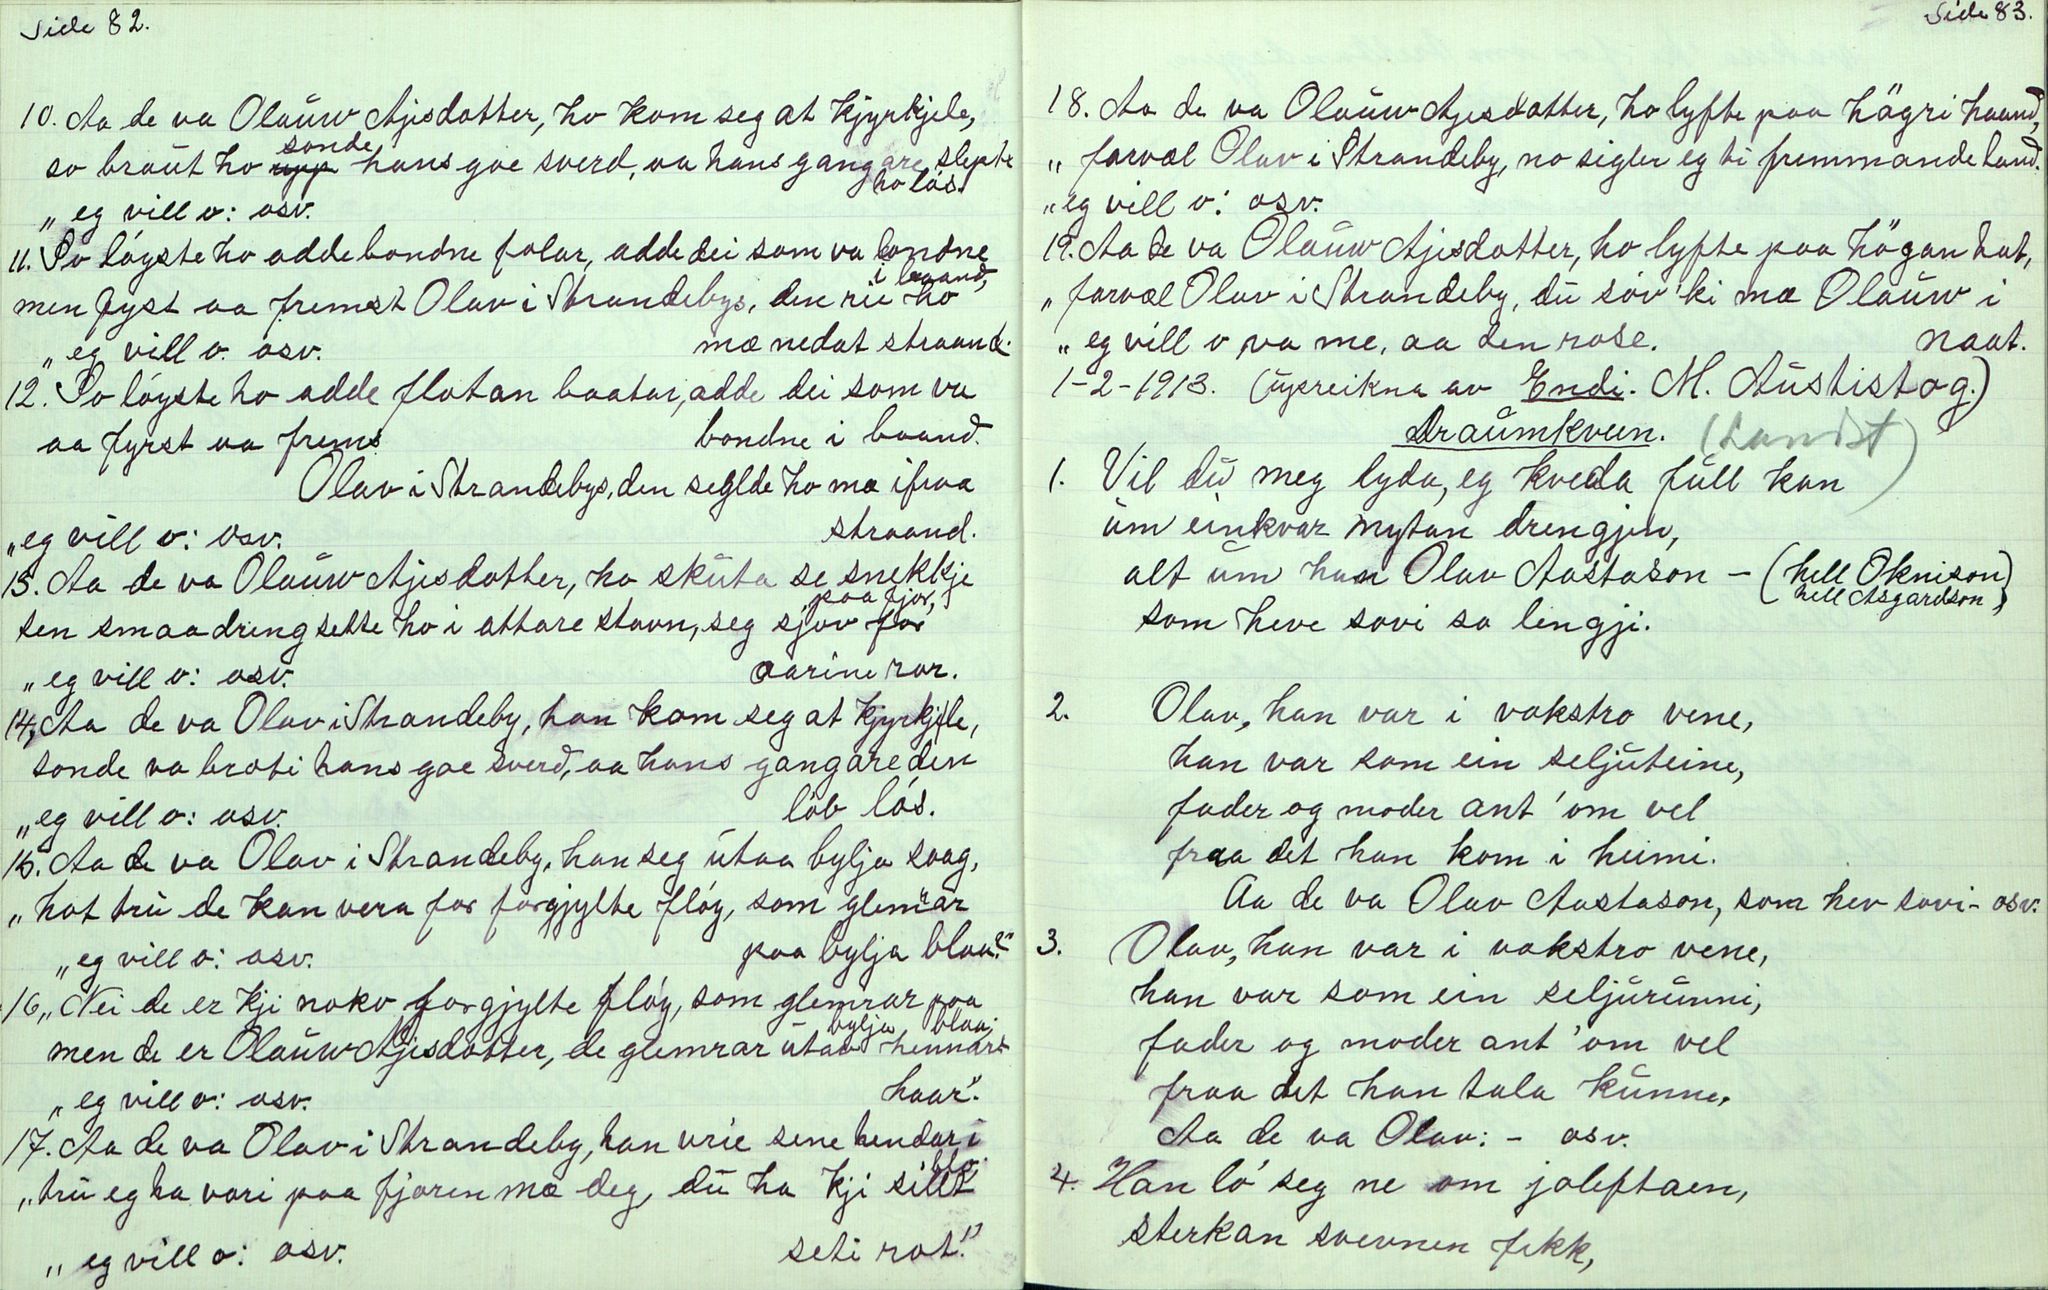 Side 82.
10. Aa de va Olaŭw Ajisdotter, ho kom seg at kjyrkjele,
sonde
so braŭt ho upp hans goe sverd, aa hans gangare slepte
ho lós.
„eg vill o: osv.
11. So lóyste ho adde bondne folar, adde dei som va bondne
i baand,
men fyst aa fremst Olav i Strandebys, den rie ho
„eg vill o. osv. mæ nedat straand.
12. So lóyste ho adde flotan baatar, adde dei som va
aa fyrst aa frems bondne i baand.
Olav i Strandebys, den seglde ho mæ ifraa
„eg vill o: osv. straand.
13. Aa de va Olaŭw Ajisdotter, ho skŭta se snekkje
paa fjor,
ten smaadreng sette ho i attare stavn, seg sjóv for
„eg vill o: osv. aarine ror.
14. Aa de va Olav i Strandeby, han kom seg at kjyrkjele,
sonde va broti hans goe sverd, aa hans gangare den
„eg vill o: osv. lób lós.
15. Aa de va Olav i Strandeby, han seg ŭtaa bylja saag,
„hot trŭ de kan vera for forgjylte flóy, som glemrar
„eg vill o: osv. paa bylja blaa?"
16. „Nei de er kji noko forgjylte flóy, som glemrar paa
bylja blaa;
men de er Olaŭw Ajisdotter, de glemrar ŭtav hennars
„eg vill o: osv. haar".
17. Aa de va Olav i Strandeby, han vrie sene hendar i
blo.
„trŭ eg ha vori paa fjoren mæ deg, dŭ ha kji sillt
„eg vill o: osv. seti rot."
Side 83.
18. Aa de va Olaŭw Ajisdotter, ho lyfte paa hägri haand,
„farvæl Olav i Strandeby, no sigler eg ti fremmande land.
„eg vill o: osv.
19. Aa de va Olaŭw Ajisdotter, ho lyfte paa högan hat,
„farvæl Olav i Strandeby, dŭ sóv 'ki mæ Olaŭw i
„eg vill o va me, aa den rose. naat.
1-2-1913. (ŭpreikna av Endi. M. Aŭstistog.)
Draŭmkvein. (Landst)
1. Vil dŭ meg lyda, eg kveda fŭll kan
ŭm einkvar nytan drengjen,
alt ŭm han Olav Aastason – (hell Oknison)
hell Asgardson)
som heve sovi so lengji.
2. Olav, han var i vokstro vene,
han var som ein seljŭteine,
fader og moder ant 'om vel
fraa det han kom i heimi.
Aa de va Olav Aastason, som hev sovi- osv.
3. Olav, han var i vokstro vene,
han var som ein seljŭrŭnni,
fader og moder ant 'om vel
fraa det han tala kŭnne.
Aa de va Olav: - osv.
4. Han ló seg ne om joleftaen,
sterkan svevnen fekk,